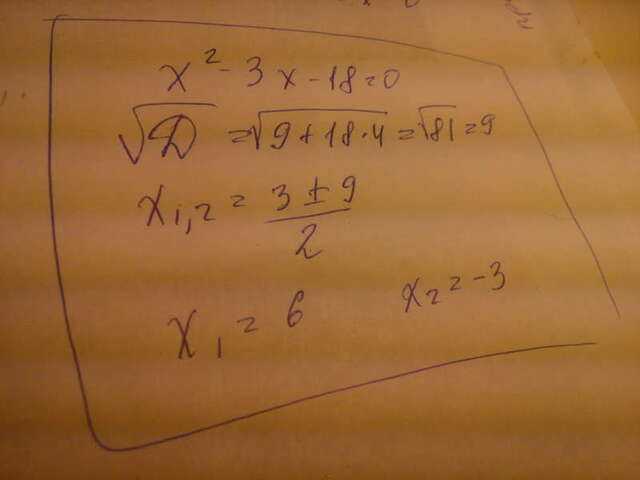 x² - 3x - 18 = 0
√D = √9 + 18·4 = √81 = 9
x₁,₂ = (3 ± 9) / 2
x₁ = 6 x₂ = -3